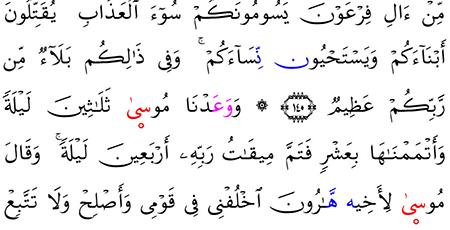 مِّنْ ءَالِ فِرْعَوْنَ يَسُومُونَكُمْ سُوٓءَ ٱلْعَذَابِ يُقَتِّلُونَ
أَبْنَآءَكُمْ وَيَسْتَحْيُون نِّسَآءَكُمْ ۚ وَفِى ذَٰلِكُم بَلَآءٌ مِّن
رَّبِّكُمْ عَظِيمٌ ١٤٠ ۞ وَوَعَدْنَا مُوسىٰ ثَلَٰثِينَ لَيْلَةً
وَأَتْمَمْنَٰهَا بِعَشْرٍ فَتَمَّ مِيقَٰتُ رَبِّهِۦ أَرْبَعِينَ لَيْلَةً ۚ وَقَالَ
مُوسىٰ لِأَخِيه هَّٰرُونَ ٱخْلُفْنِى فِى قَوْمِى وَأَصْلِحْ وَلَا تَتَّبِعْ